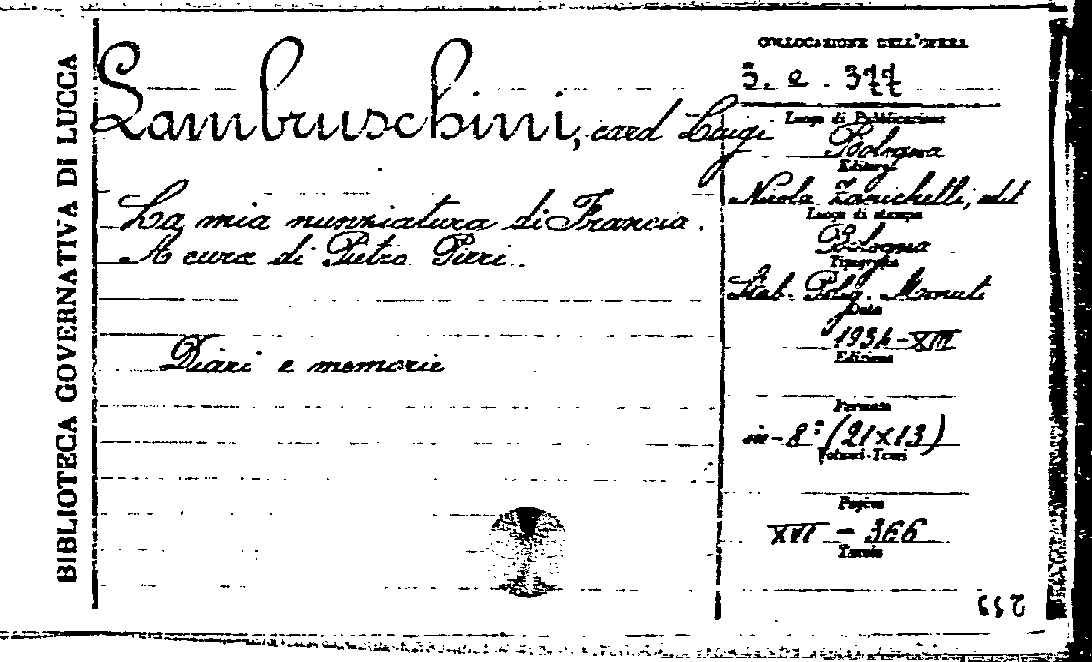 BIBLIOTECA GOVERNATIVA DI LUCCA
Lambruschini, card Luigi
La mia nunziatura di Francia.
A cura di Pietro Pirri.
Diari e memorie
COLLOCAZIONE DELL'OPERA
5. e. 377
Luogo di Pubblicazione
Bologna
Editore
Nicola Zanichelli, edit
Luogo di stampa
Bologna
Tipografia
Stab. Polig.
Data
1934-XII
Edizione
Formato
in-8° (21x13)
Volumi-Tomi
Pagine
XVI - 366
Tavole